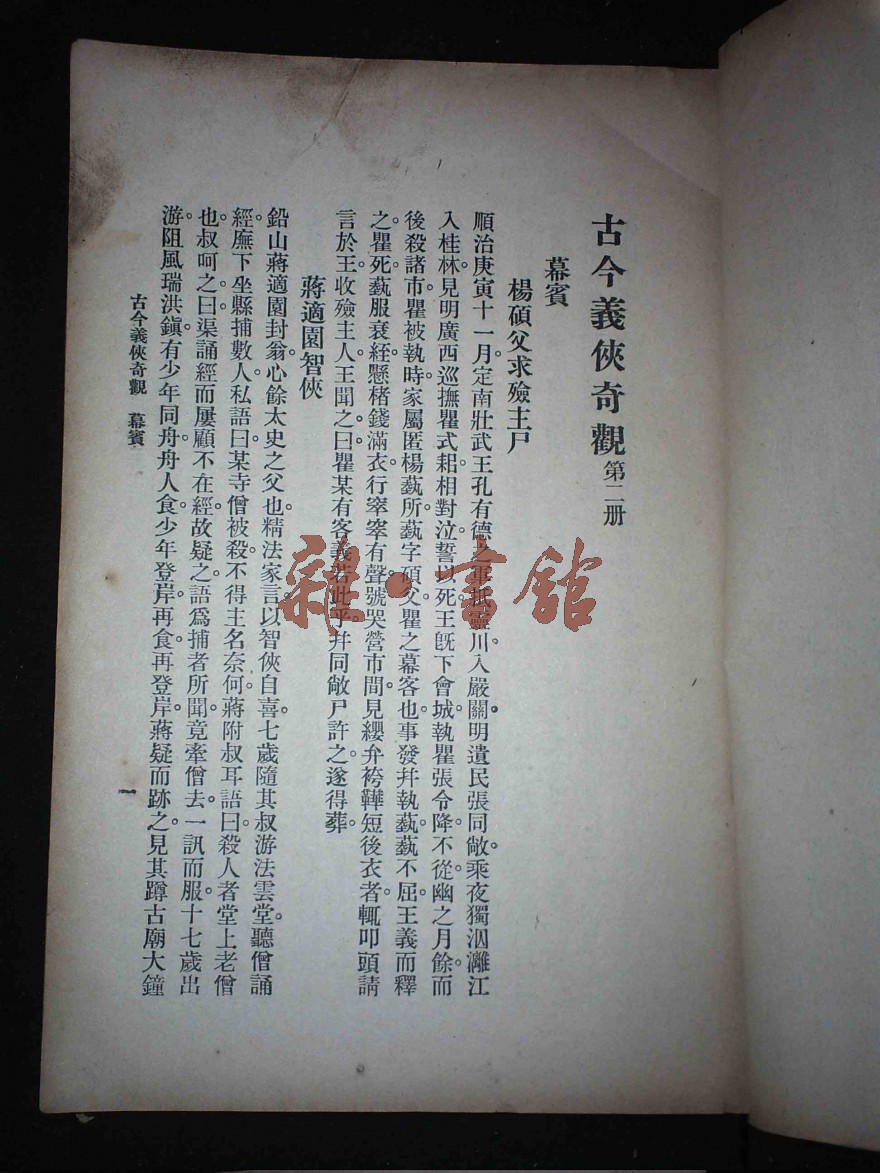 古今義俠奇觀 第二册
幕賓
楊碩父求殮主尸
順治庚寅十一月。定南壯武王孔有德之軍抵靈川。入嚴關。明遺民張同敞。乘夜獨泅灕江
入桂林。見明廣西巡撫瞿式耜相對泣。誓以死。王旣下會城。執瞿張令降。不從。幽之月餘。而
後殺諸市。瞿被執時。家屬匿楊蓺所。蓺字碩父。瞿之幕客也。事發。幷執蓺。蓺不屈。王義而釋
之。瞿死。蓺服衰絰。懸楮錢滿衣。行窣窣有聲。號哭營市間。見纓弁袴鞾短後衣者。輒叩頭請
言於王。收殮主人。王聞之。曰。瞿某有客義若此乎。幷同敞尸許之。遂得葬。
蔣適園智俠
鉛山蔣適園封翁。心餘太史之父也。精法家言。以智俠自喜。七歲隨其叔游法雲堂。聽僧誦
經。廡下坐縣捕數人。私語曰。某寺僧被殺。不得主名。奈何。蔣附叔耳語曰。殺人者堂上老僧
也。叔呵之。曰。渠誦經而屢顧不在經。故疑之。語爲捕者所聞。竟牽僧去。一訊而服。十七歲出
游。阻風瑞洪鎭。有少年同舟。舟人食。少年登岸。再食。再登岸。蔣疑而跡之。見其蹲古廟大鐘
古今義俠奇觀 幕賓
一
雜·書館